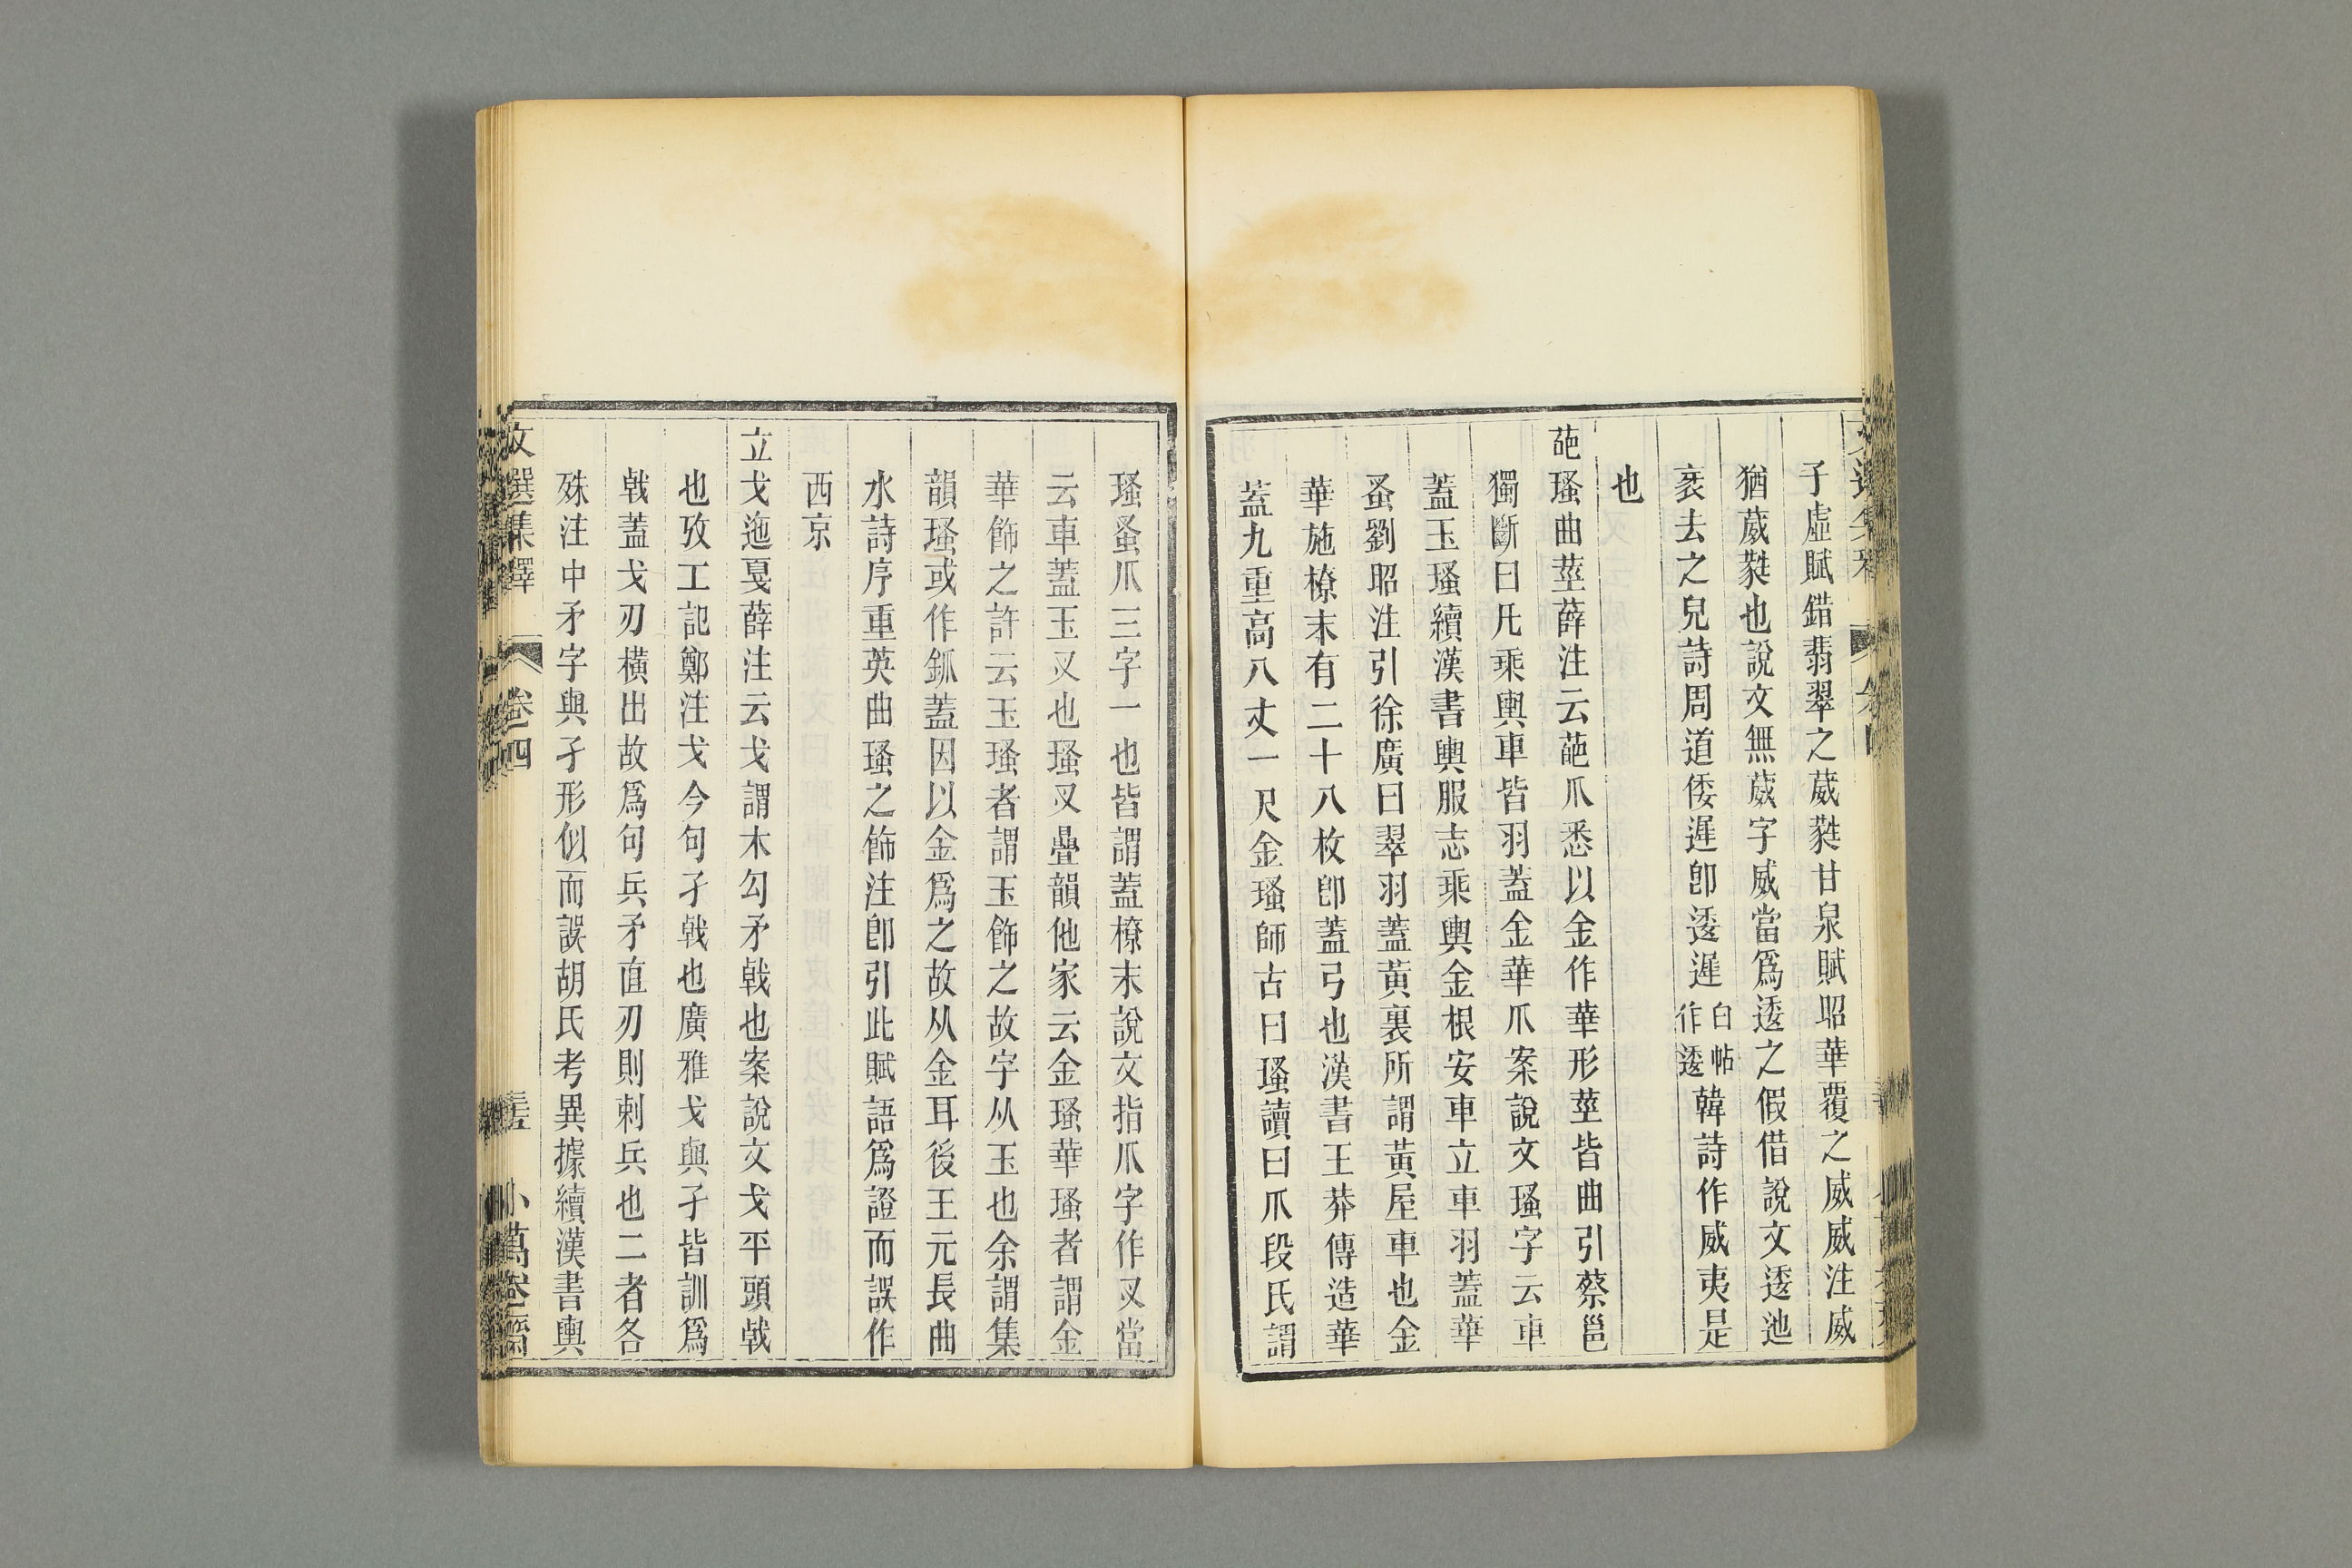 子虛賦錯翡翠之葳蕤甘泉賦昭華覆之威威注威
猶葳蕤也說文無葳字威當爲逶之假借說文逶迆
衺去之皃詩周道倭遲卽逶遲白帖作逶韓詩作威夷是
也
葩瑵曲莖薛注云葩爪悉以金作華形莖皆曲引蔡邕
獨斷曰凡乘輿車皆羽蓋金華爪案說文瑵字云車
蓋玉瑵續漢書輿服志乘輿金根安車立車羽蓋華
蚤劉昭注引徐廣曰翠羽蓋黃裏所謂黃屋車也金
華施橑末有二十八枚卽蓋弓也漢書王莽傳造華
蓋九重高八丈一尺金瑵師古曰瑵讀曰爪段氏謂
瑵蚤爪三字一也皆謂蓋橑末說文指爪字作叉當
云車蓋玉叉也瑵叉疊韻他家云金瑵華瑵者謂金
華飾之許云玉瑵者謂玉飾之故字从玉也余謂集
韻瑵或作釽蓋因以金爲之故从金耳後王元長曲
水詩序重英曲瑵之飾注卽引此賦語爲證而誤作
西京
立戈迤戛薛注云戈謂木勾矛戟也案說文戈平頭戟
也攷工記鄭注戈今句孑戟也廣雅戈與孑皆訓爲
戟蓋戈刃橫出故爲句兵矛直刃則刺兵也二者各
殊注中矛字與孑形似而誤胡氏考異據續漢書輿
文選集釋
卷四
小萬卷齋